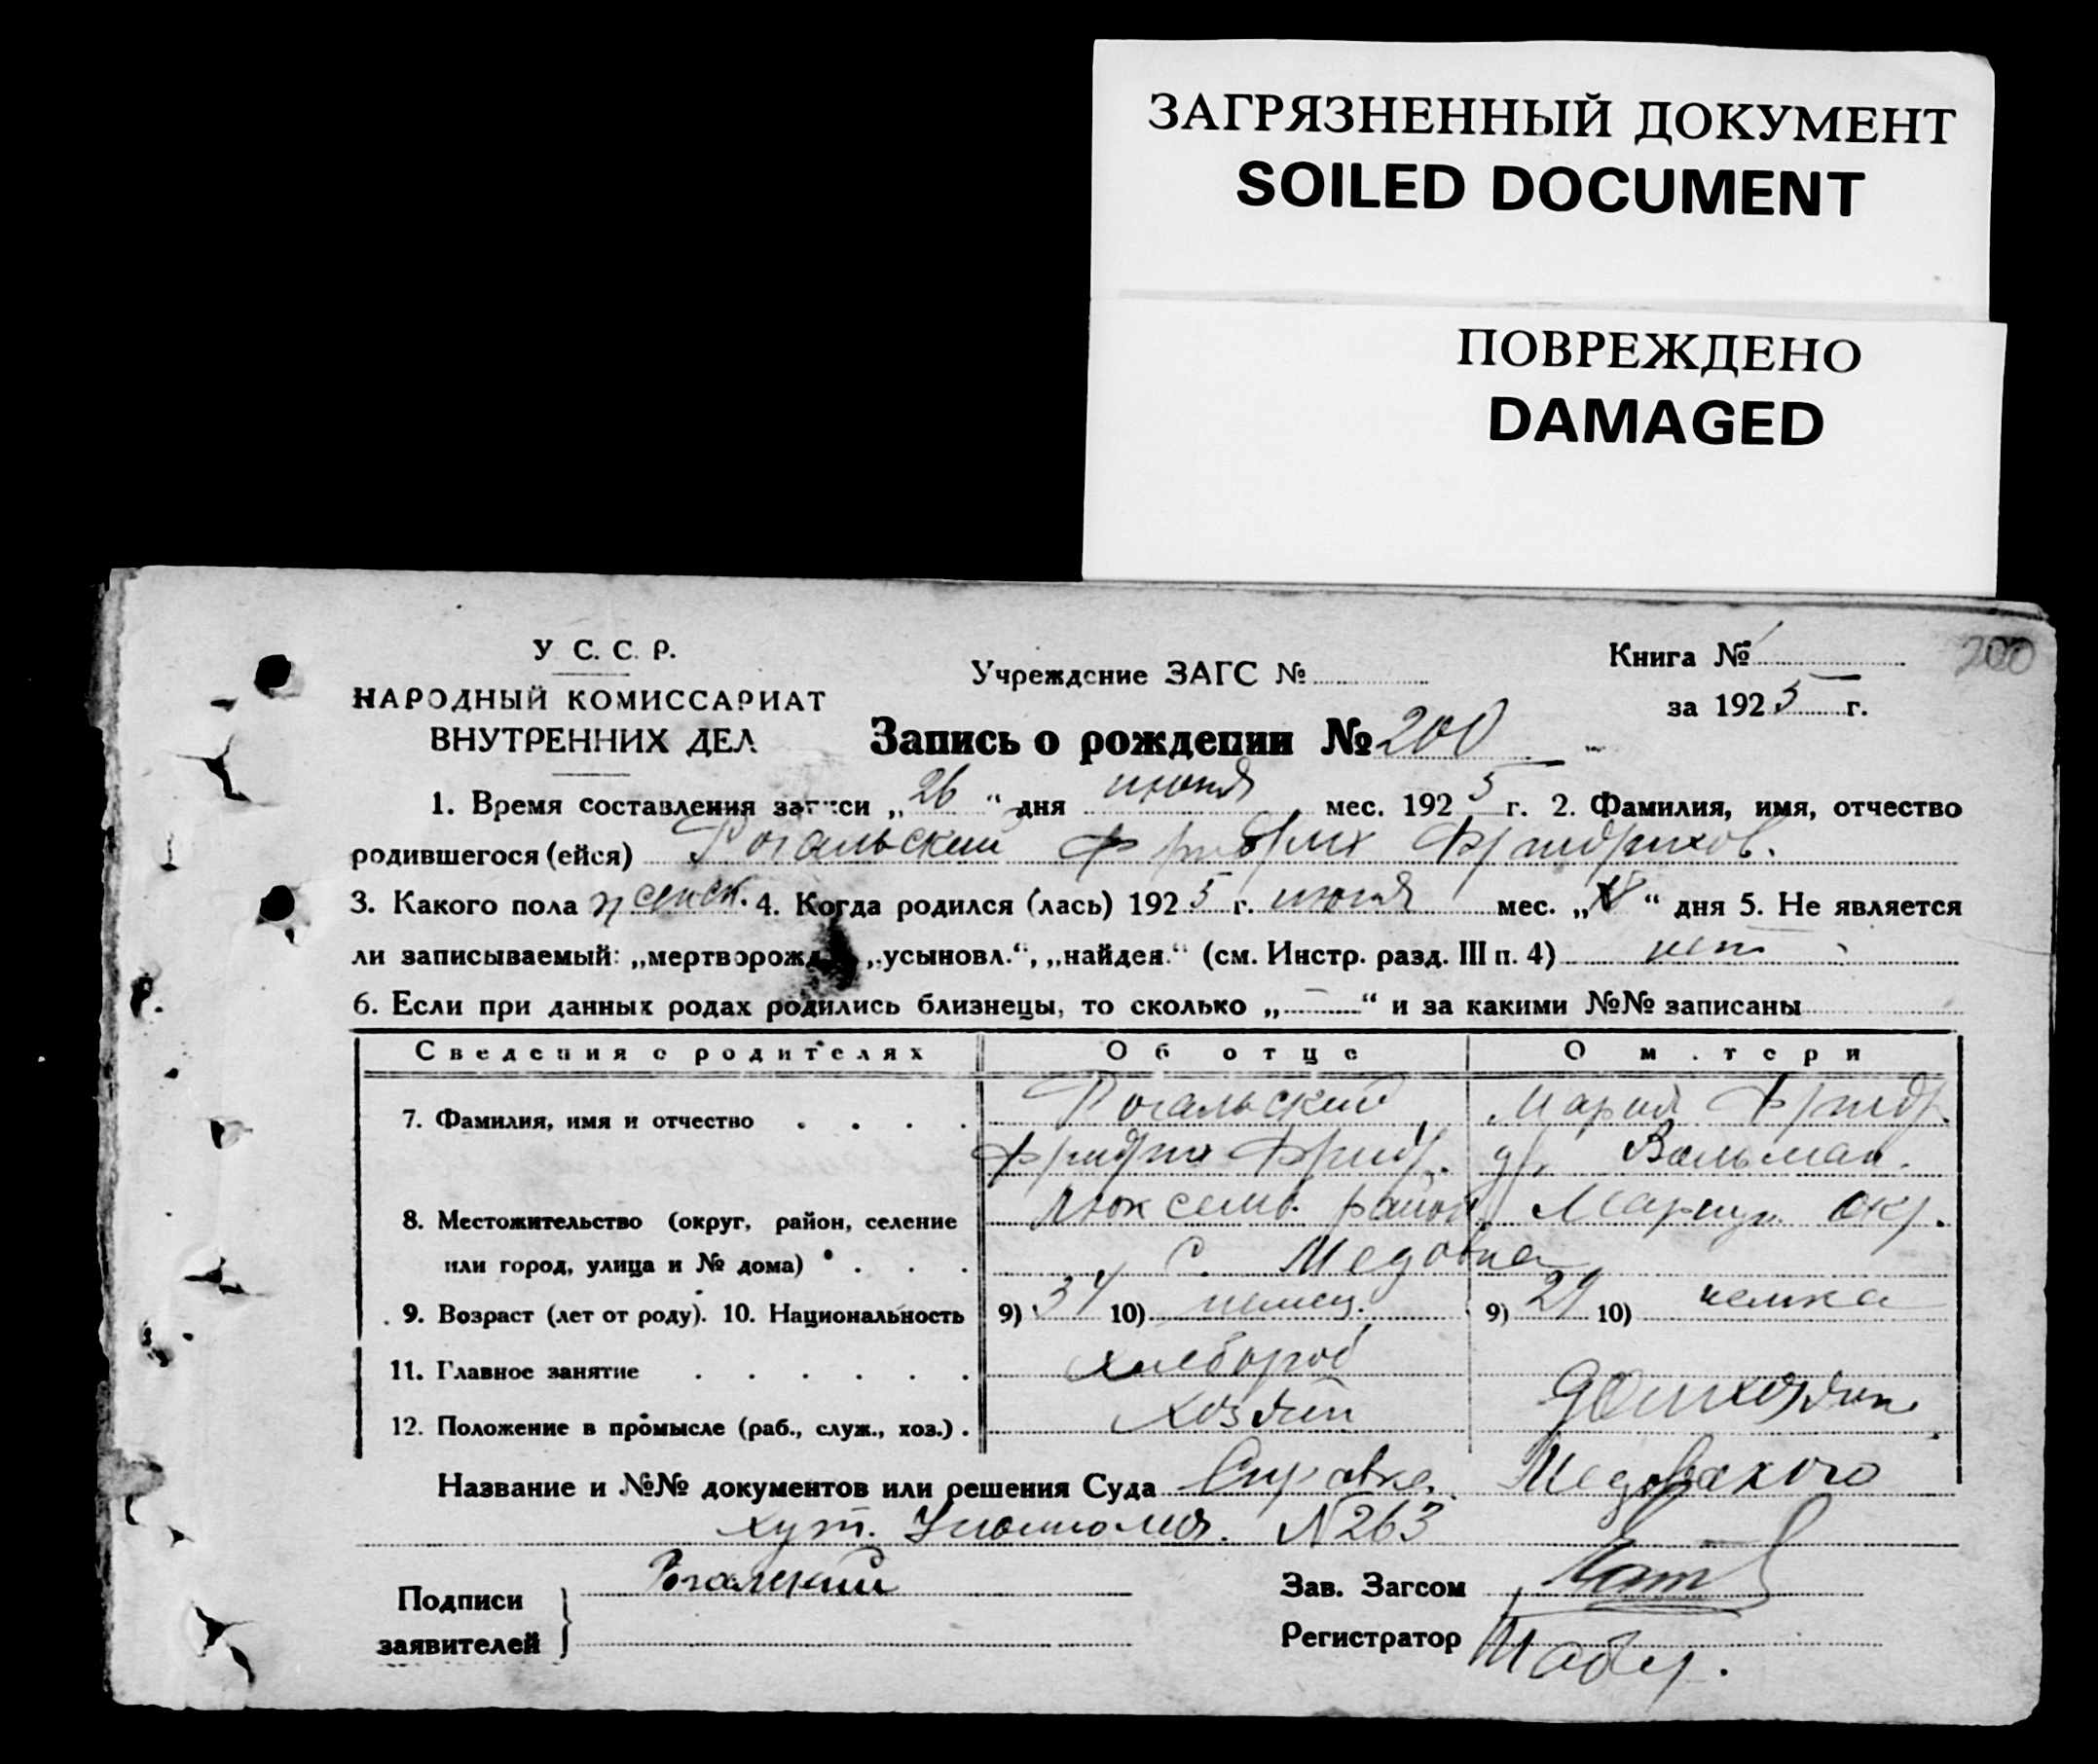 ЗАГРЯЗНЕННЫЙ ДОКУМЕНТ
SOILED DOCUMENT
ПОВРЕЖДЕНО
DAMAGED
У С. С. Р.
НАРОДНЫЙ КОМИССАРИАТ
ВНУТРЕННИХ ДЕЛ
Учреждение ЗАГС №
Книга № 200
за 1925 г.
Запись о рождении № 200
1. Время составления записи „26“ дня июня мес. 1925 г. 2. Фамилия, имя, отчество
родившегося (ейся) Рогальский Фридрих Фридрихов.
3. Какого пола женск. 4. Когда родился (лась) 1925 г. июня мес. „ “ дня 5. Не является
ли записываемый: „мертворожд „усыновл.“, „найден.“ (см. Инстр. разд. III п. 4) нет
6. Если при данных родах родились близнецы, то сколько „—“ и за какими №№ записаны
Сведения о родителях Об отце О м.тери
7. Фамилия, имя и отчество Рогальский Мария Фридр.
Фридрих Фридр. Вальман.
8. Местожительство (округ, район, селение Люксемб. район, Мариуп. окр.
или город, улица и № дома) С. Медовка
9. Возраст (лет от роду). 10. Национальность 9) 34 10) немец. 9) 29 10) немка
11. Главное занятие хлебороб
12. Положение в промысле (раб., служ., хоз.) хозяин домхозяик
Название и №№ документов или решения Суда Справка Медовского
хут. Уполномоч. N 263
Подписи
заявителей
Рогальский
Зав. Загсом
Регистратор